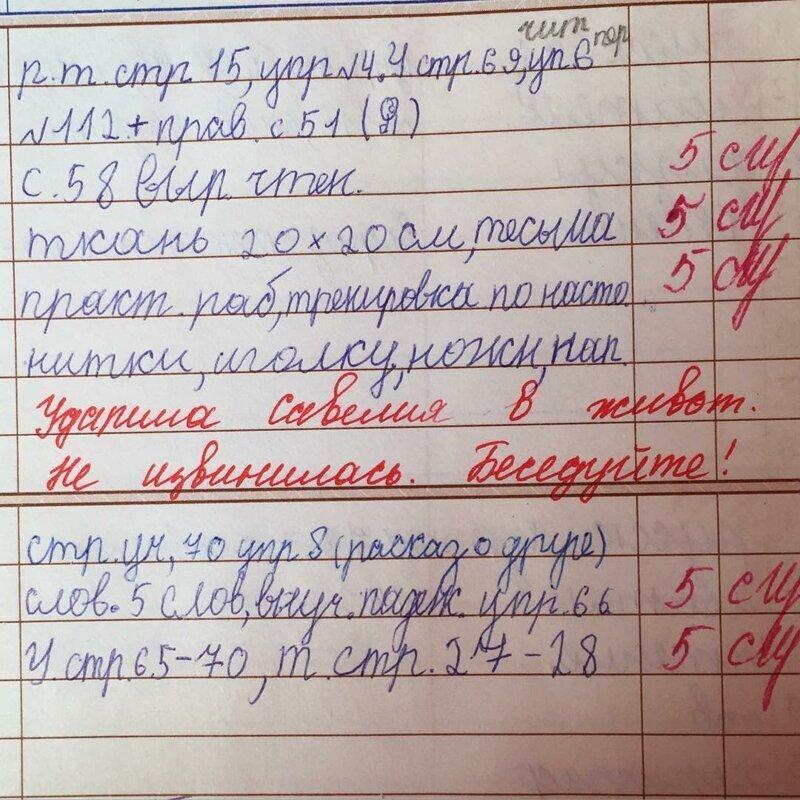 чит пер
р.т. стр 15, упр №4. У стр. 69, уп 6
№112 + прав. с 51 (Я)
с. 58 выр. чтен. 5
ткань 20×20 см, тесьма 5
практ. раб, тренировка по насто 5
нитки, иголку, ножн, нап.
Ударила Савелия в живот.
Не извинилась. Беседуйте!
стр. уч, 70 упр 8 (расказ о друге)
слов. 5 слов, выуч. падеж. упр. 66 5
У. стр. 65-70, т. стр. 27-28 5